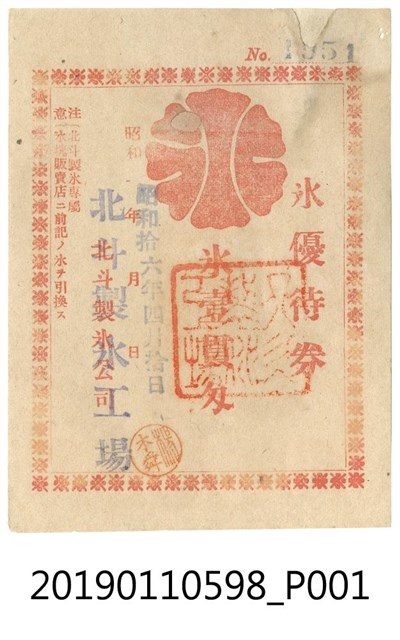 No. 1951
氷
氷優待券
氷壹圓分
昭和 年 月 日
昭和拾六年四月拾日
北斗製氷公司
北斗製氷工場
注意
北斗製氷專屬
氷塊販賣店ニ前記ノ氷ヲ引換ス
20190110598_P001